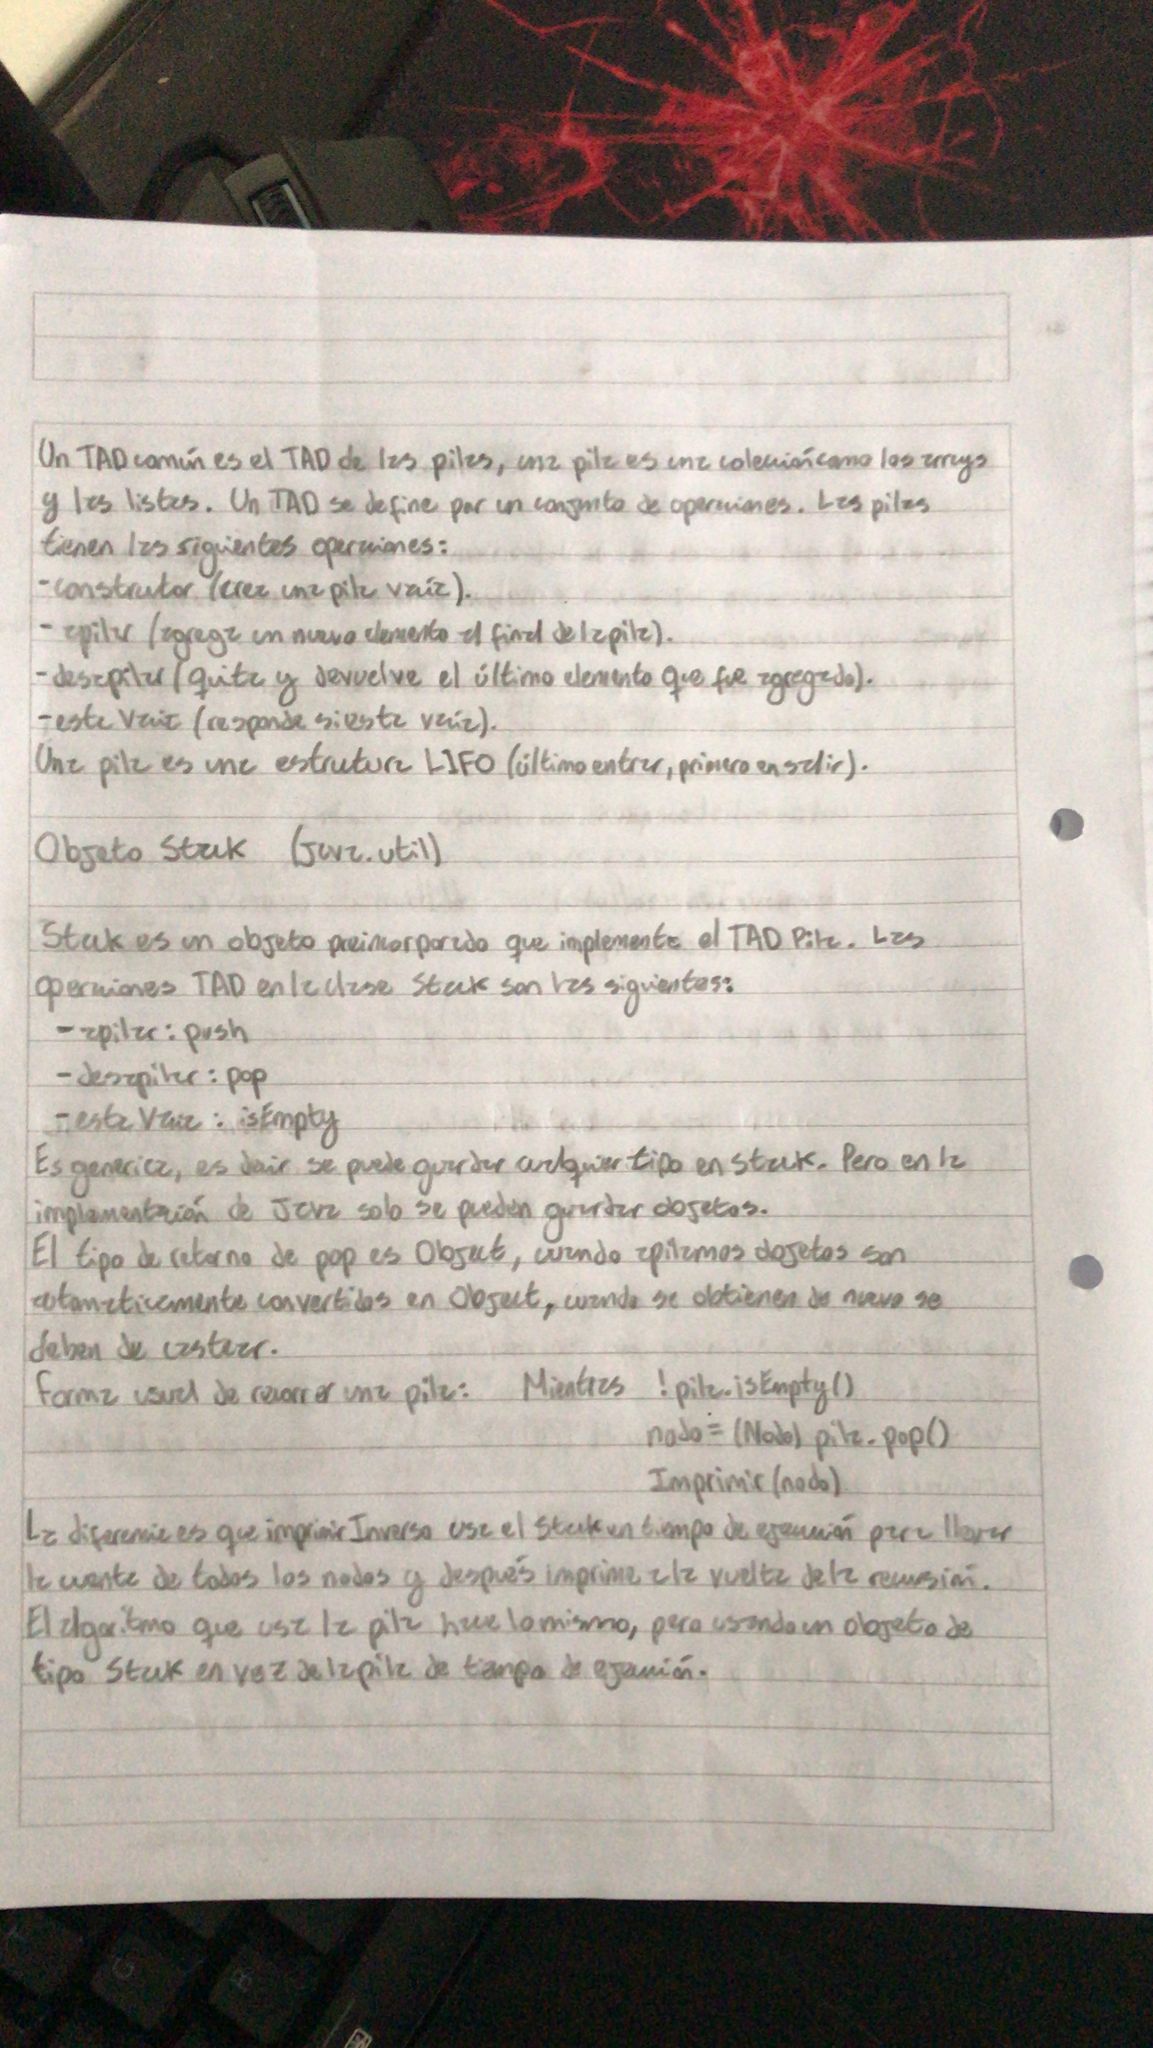 Un TAD común es el TAD de las pilas, una pila es una colección como los arrays
y las listas. Un TAD se define por un conjunto de operaciones. Las pilas
tienen las siguientes operaciones:
-constructor (crea una pila vacía).
-apilar (agrega un nuevo elemento al final de la pila).
-desapilar (quita y devuelve el último elemento que fue agregado).
-esta Vacia (responde si esta vacía).
Una pila es una estructura LIFO (último entrar, primero en salir).
Objeto Stack (java.util)
Stack es un objeto preincorporado que implementa el TAD Pila. Las
operaciones TAD en la clase Stack son las siguientes:
-apilar: push
-desapilar: pop
-esta Vacia: isEmpty
Es generica, es decir se puede guardar cualquier tipo en Stack. Pero en la
implementación de Java solo se pueden guardar objetos.
El tipo de retorno de pop es Object, cuando apilamos objetos son
automaticamente convertidos en Object, cuando se obtienen de nuevo se
deben de castear.
Forma usual de recorrer una pila: Mientras !pila.isEmpty()
nodo = (Nodo) pila.pop()
Imprimir(nodo)
La diferencia es que imprimir Inverso usa el Stack en tiempo de ejecución para llevar
la cuenta de todos los nodos y después imprime a la vuelta de la recursión.
El algoritmo que usa la pila hace lo mismo, pero usando un objeto de
tipo Stack en vez de la pila de tiempo de ejecución.